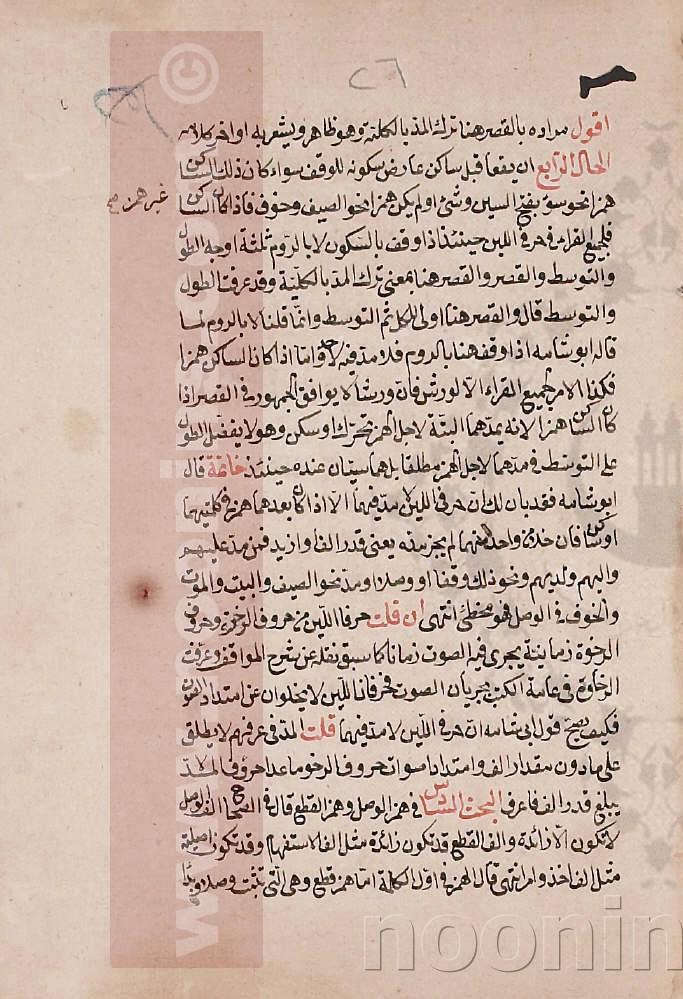 ٢٦
اقول مراده بالقصر هنا ترك المد بالكلية وهو ظاهر ويشعر به اواخر كلامه
الحال الرابع ان يقعا قبل ساكن عارض سكونه للوقف سواء كان ذلك الساكن
همزا نحو سوء بفتح السين وشئ او لم يكن همزا نحو الصيف وخوف فاذا كان الساكن
غير همز صح
فلجميع القراء في حرفي اللين حينئذ اذا وقف بالسكون لا بالروم ثلثة اوجه الطول
والتوسط والقصر والقصر هنا بمعنى ترك المد بالكلية وقد عرفت الطول
والتوسط قال والقصر هنا اولى للكل ثم التوسط وانما قلنا لا بالروم لما
قاله ابو شامه اذا وقف هنا بالروم فلا مد فيه لاحد واما اذا كان الساكن همزا
فكذا الامر لجميع القراء الا لورش فان ورشا لا يوافق الجمهور في القصر اذا
كان الساكن همزا لانه يمدهما البتة لاجل الهمز تحرك او سكن وهو لا يفضل الطول
على التوسط في مدهما لاجل الهمز مطلقا بل هما سيتان عنده حينئذ خاتمة قال
ابو شامه فقد بان لك ان حرفي اللين لا مد فيهما الا اذا كان بعدهما همز في كلمتيهما
او ساكن فان خلا من واحد منهما لم يجز مده يعني قدر الف او ازيد فمن مد عليهم
واليهم ولديهم ونحو ذلك وقفا او وصلا او مد نحو الصيف والبيت والموت
والخوف في الوصل فهو مخطئ انتهى ان قلت حرفا اللين من حروف الرخوة وحروف
الرخوة زمانية يجري فيها الصوت زمانا كما سبق نقله عن شرح المواقف وعرفت
الرخاوة في عامة الكتب بجريان الصوت فحرفا اللين لا يخلوان عن امتداد الصوت
فكيف يصح قول ابي شامه ان حرفي اللين لا مد فيهما قلت المد في عرفهم لا يطلق
على ما دون مقدار الف وامتداد اصوات حروف الرخو ما عدا حروف المد لا
يبلغ قدر الف فاعرف البحث السادس في همز الوصل وهمز القطع قال في الصحاح الف الوصل
لا تكون الا زائدة والف القطع قد تكون زائدة مثل الف الاستفهام وقد تكون اصلية
مثل الف اخذ وامر انتهى قال الهمز في اول الكلمة اما همز قطع وهي التي تثبت وصلا وبدا
www.
©
noonin